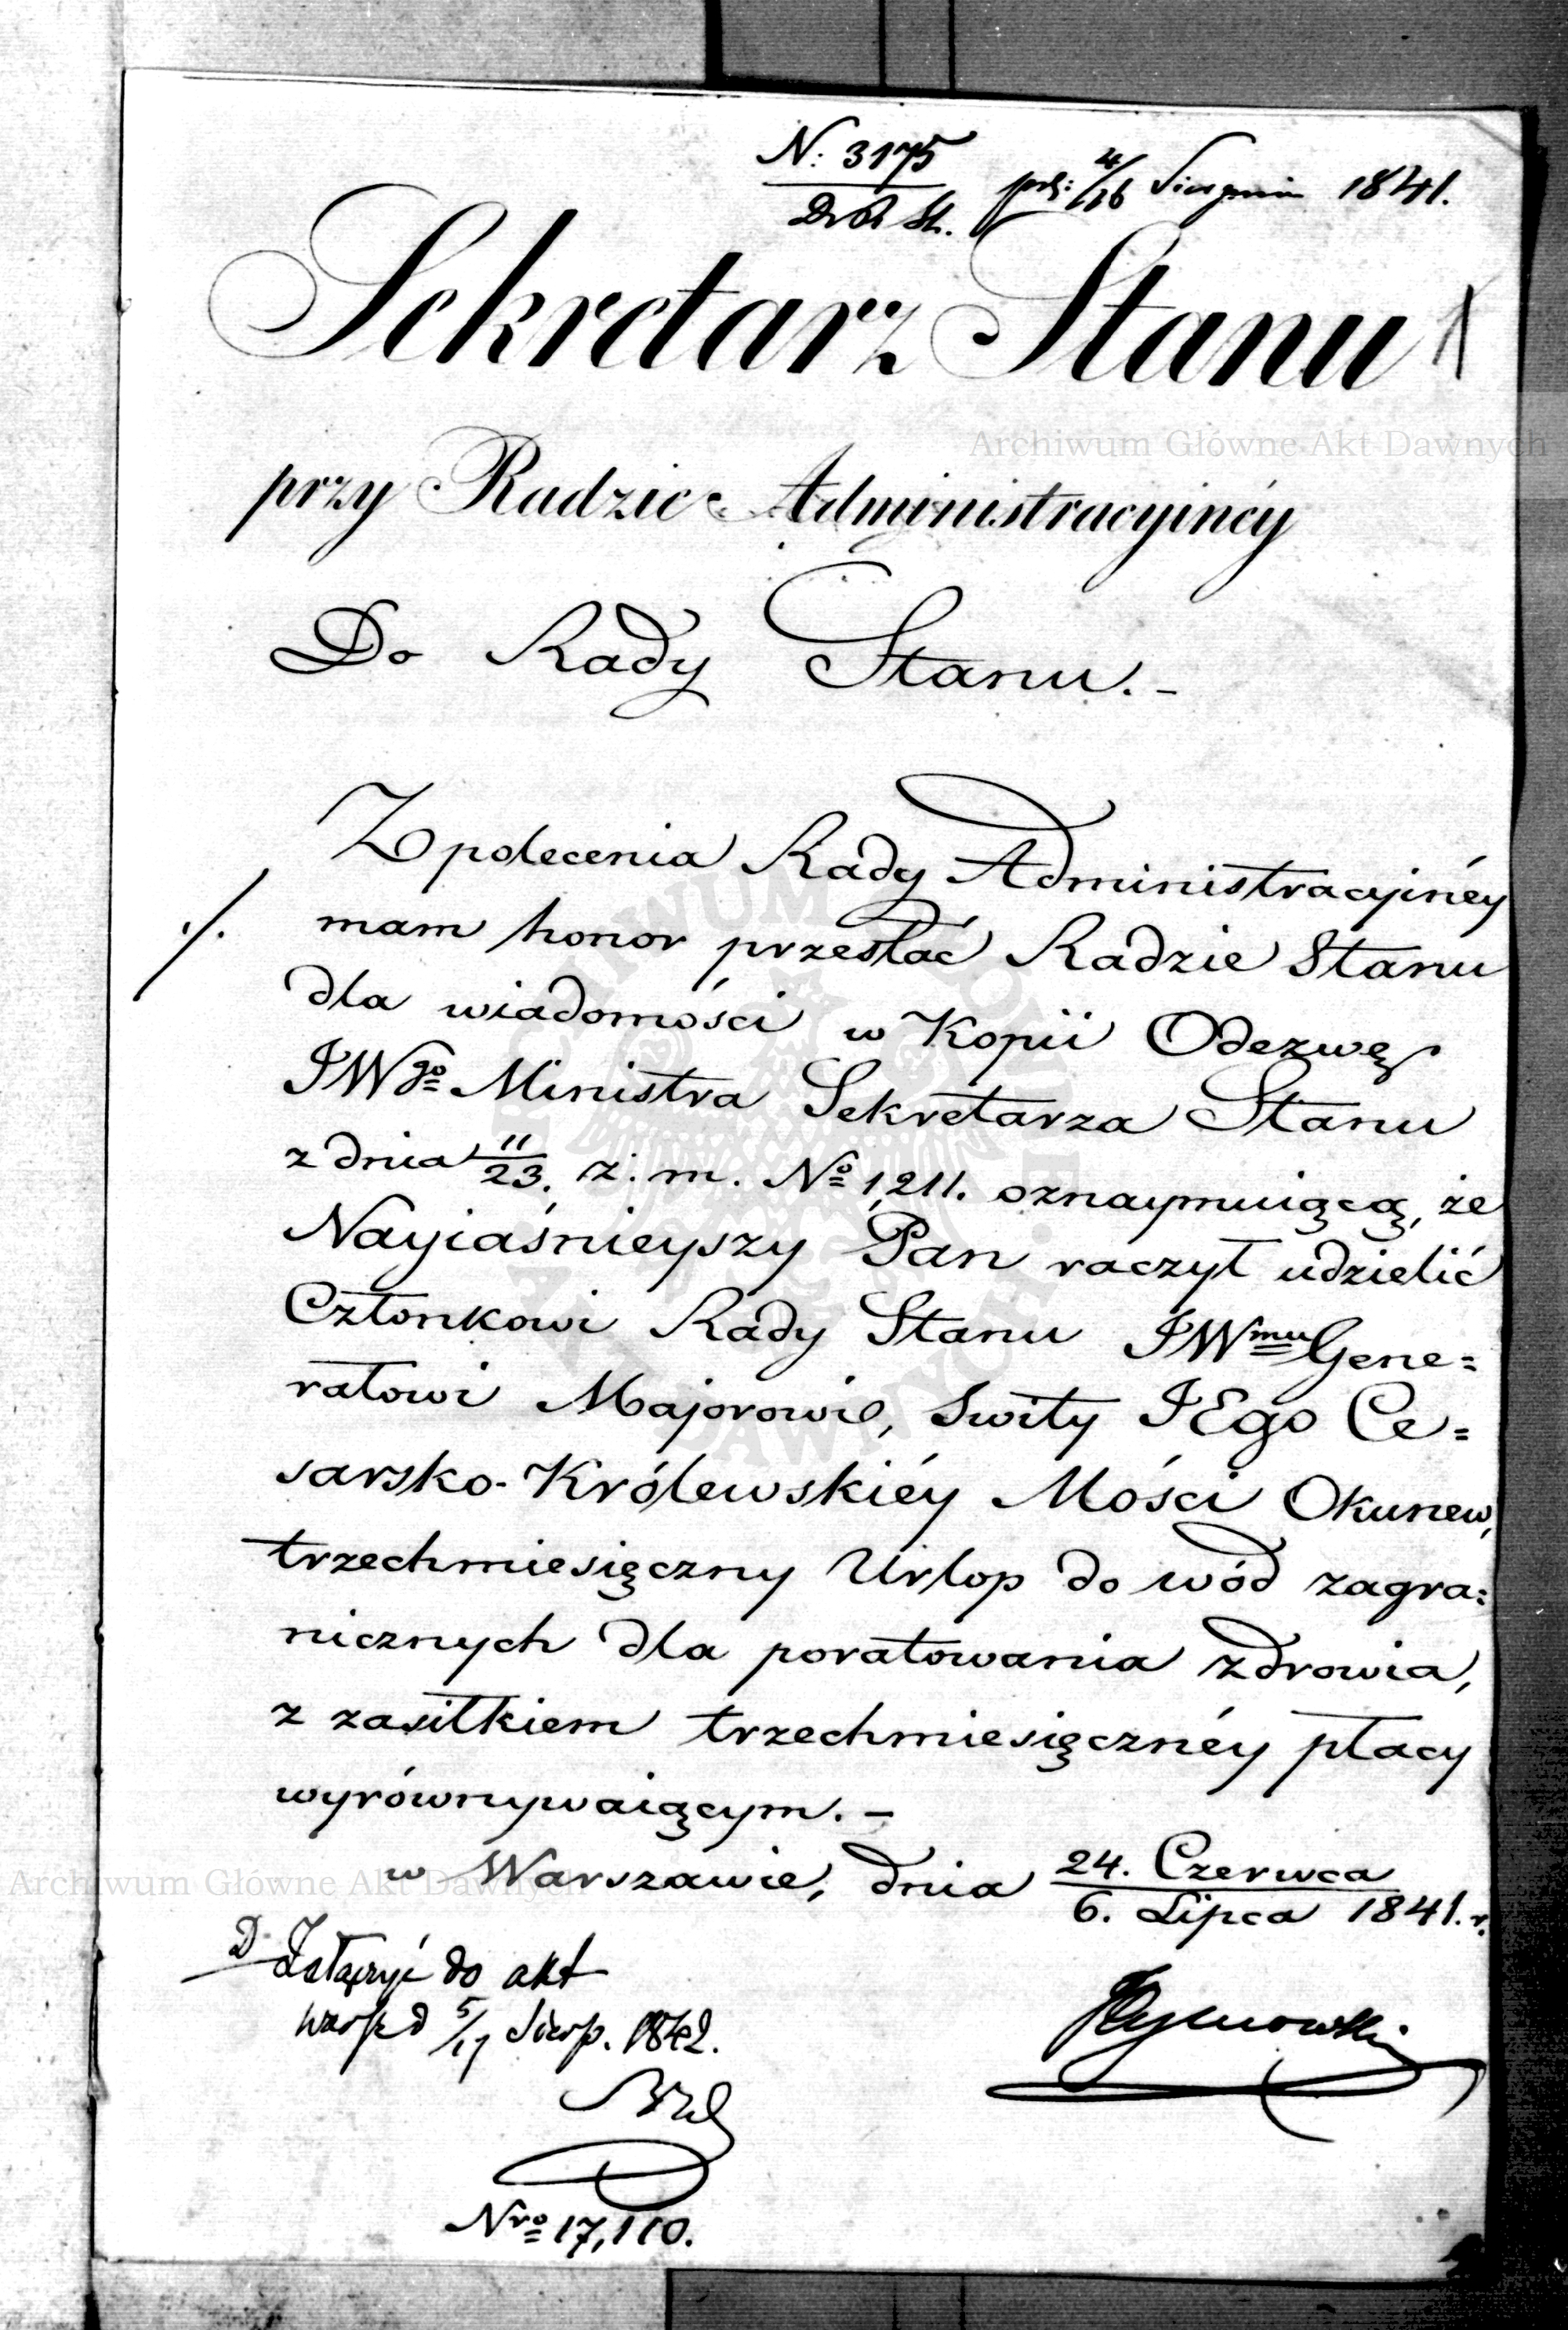 N: 3175 pr: 4/16 Sierpnia 1841.
Sekretarz Stanu
1
Archiwum Główne Akt Dawnych
przy Radzie Administracyinéy
Do Rady Stanu.-
Z polecenia Rady Administracyinéy
./. mam honor przesłać Radzie Stanu
dla wiadomości w Kopii Odezwę
JWgo Ministra Sekretarza Stanu
z dnia 11/23. z. m. No 1,211. oznaymuiącą, że
Nayiaśnieyszy Pan raczył udzielić
Członkowi Rady Stanu JWmu Gene=
rałowi Majorowi, Swity JEgo Ce=
sarsko-Królewskiéy Mości Okunew,
trzechmiesięczny Urlop do wód zagra=
nicznych dla poratowania zdrowia,
z zasiłkiem trzechmiesięcznéy płacy
wyrównywaiącym.-
w Warszawie, dnia 24. Czerwca / 6. Lipca 1841. r.
Archiwum Główne Akt Dawnych
do akt
5/17 Sierp. 1842.
Tymowski
Nro 17,110.
ARCHIWUM GŁÓWNE AKT DAWNYCH